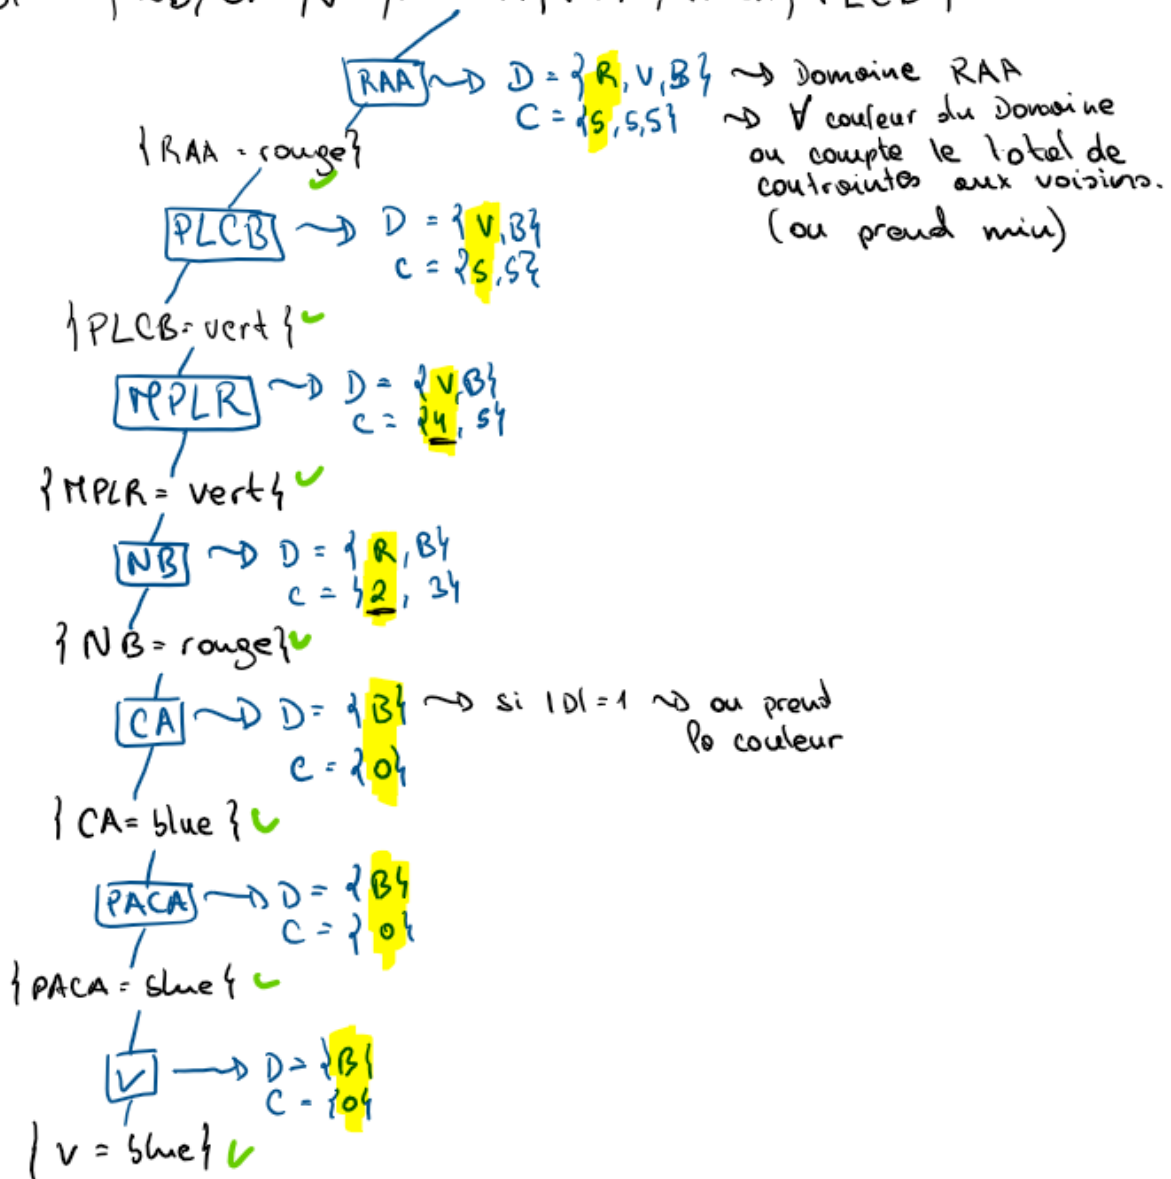 RAA ~> D = {R, V, B} ~> Domaine RAA
C = {5, 5, 5} ~> ∀ couleur du Domaine
on compte le total de
contraintes aux voisins.
(on prend min)
{RAA = rouge}
PLCB ~> D = {V, B}
C = {5, 5}
{PLCB = vert}
MPLR ~> D = {V, B}
C = {4, 5}
{MPLR = vert}
NB ~> D = {R, B}
C = {2, 3}
{NB = rouge}
CA ~> D = {B} ~> si |D| = 1 ~> on prend
la couleur
C = {0}
{CA = blue}
PACA ~> D = {B}
C = {0}
{PACA = blue}
V → D = {B}
C = {0}
{V = blue}